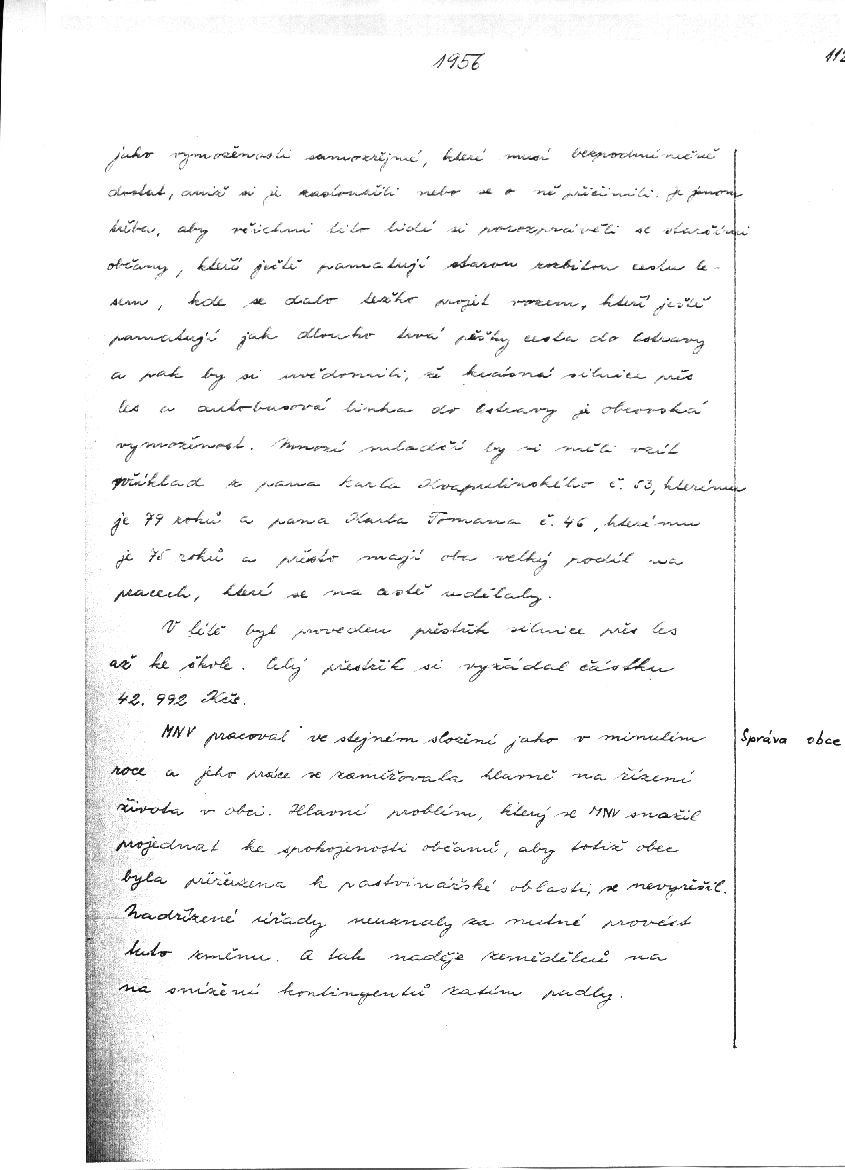 1956
112
jako vymoženosti samozřejmé, které musí bezpodmínečně
dostat, aniž si je zasloužili nebo se o ně přičinili. Je jenom
třeba, aby všichni tito lidé si porozprávěli se staršími
občany, kteří ještě pamatují starou rozbitou cestu le-
sem, kde se dalo težko projet vozem, kteří ještě
pamatují jak dlouho trvá pěšky cesta do Ostravy
a pak by si uvědomili, že krásná silnice přes
les a autobusová linka do Ostravy je obrovská
vymoženost. Mnozí mladší by si měli vzít
příklad z pana Karla Kvapulinského č. 53, kterému
je 79 roků a pana Karla Tomana č. 46, kterému
je 75 roků a přesto mají oba velký podíl na
pracech, které se na cestě udělaly.
V létě byl proveden přestřik silnice přes les
až ke škole. Celý přestřik si vyžádal částku
42.992 Kčs.
MNV pracoval ve stejném složení jako v minulém
Správa obce
roce a jeho práce se zaměřovala hlavně na řízení
života v obci. Hlavní problém, který se MNV snažil
projednat ke spokojenosti občanů, aby totiž obec
byla přeřazena k pastvinářské oblasti, se nevyřešil.
Nadřízené úřady neuznaly za nutné provést
tuto změnu. A tak naděje zemědělců na
na snížení kontingentů zatím padly.